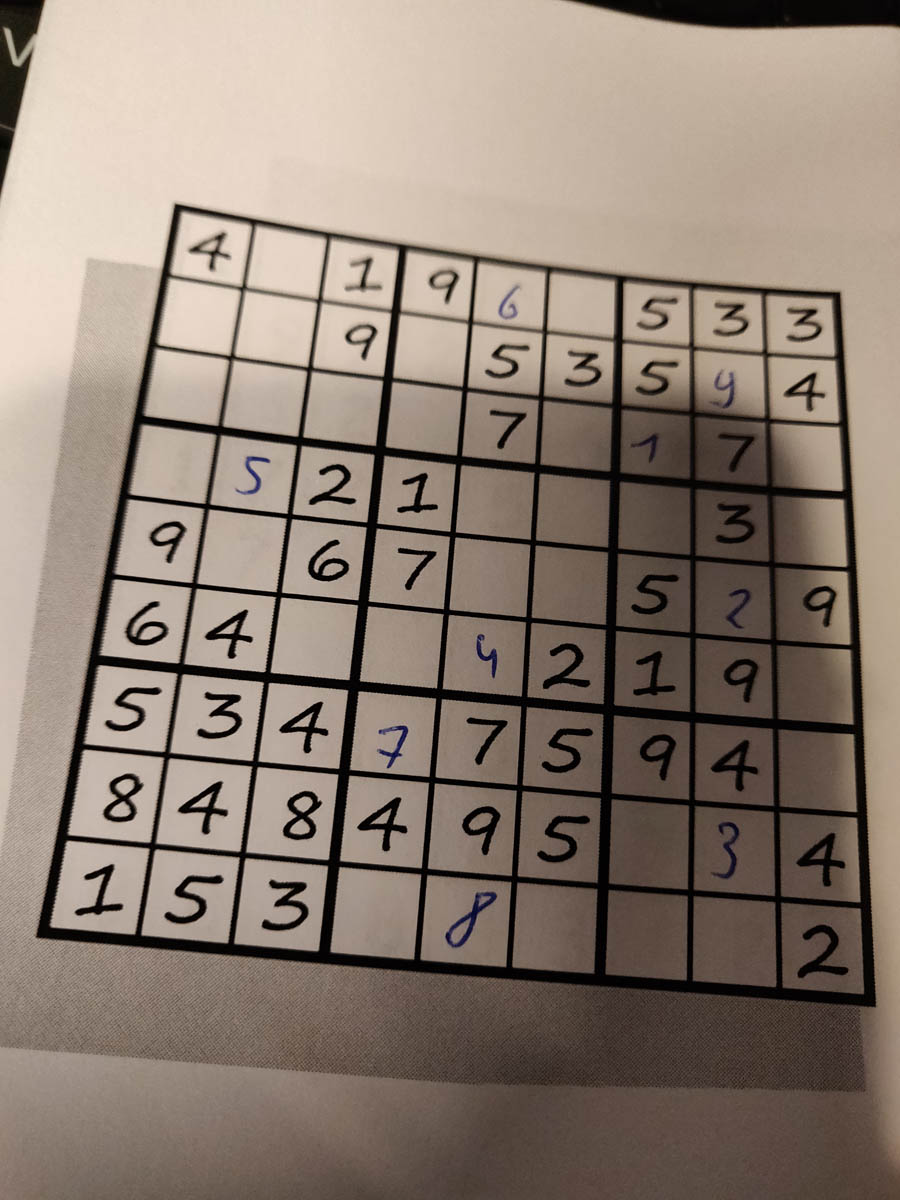 4 1 9 6 5 3 3
9 5 3 5 9 4
7 1 7
5 2 1 3
9 6 7 5 2 9
6 4 4 2 1 9
5 3 4 7 7 5 9 4
8 4 8 4 9 5 3 4
1 5 3 8 2